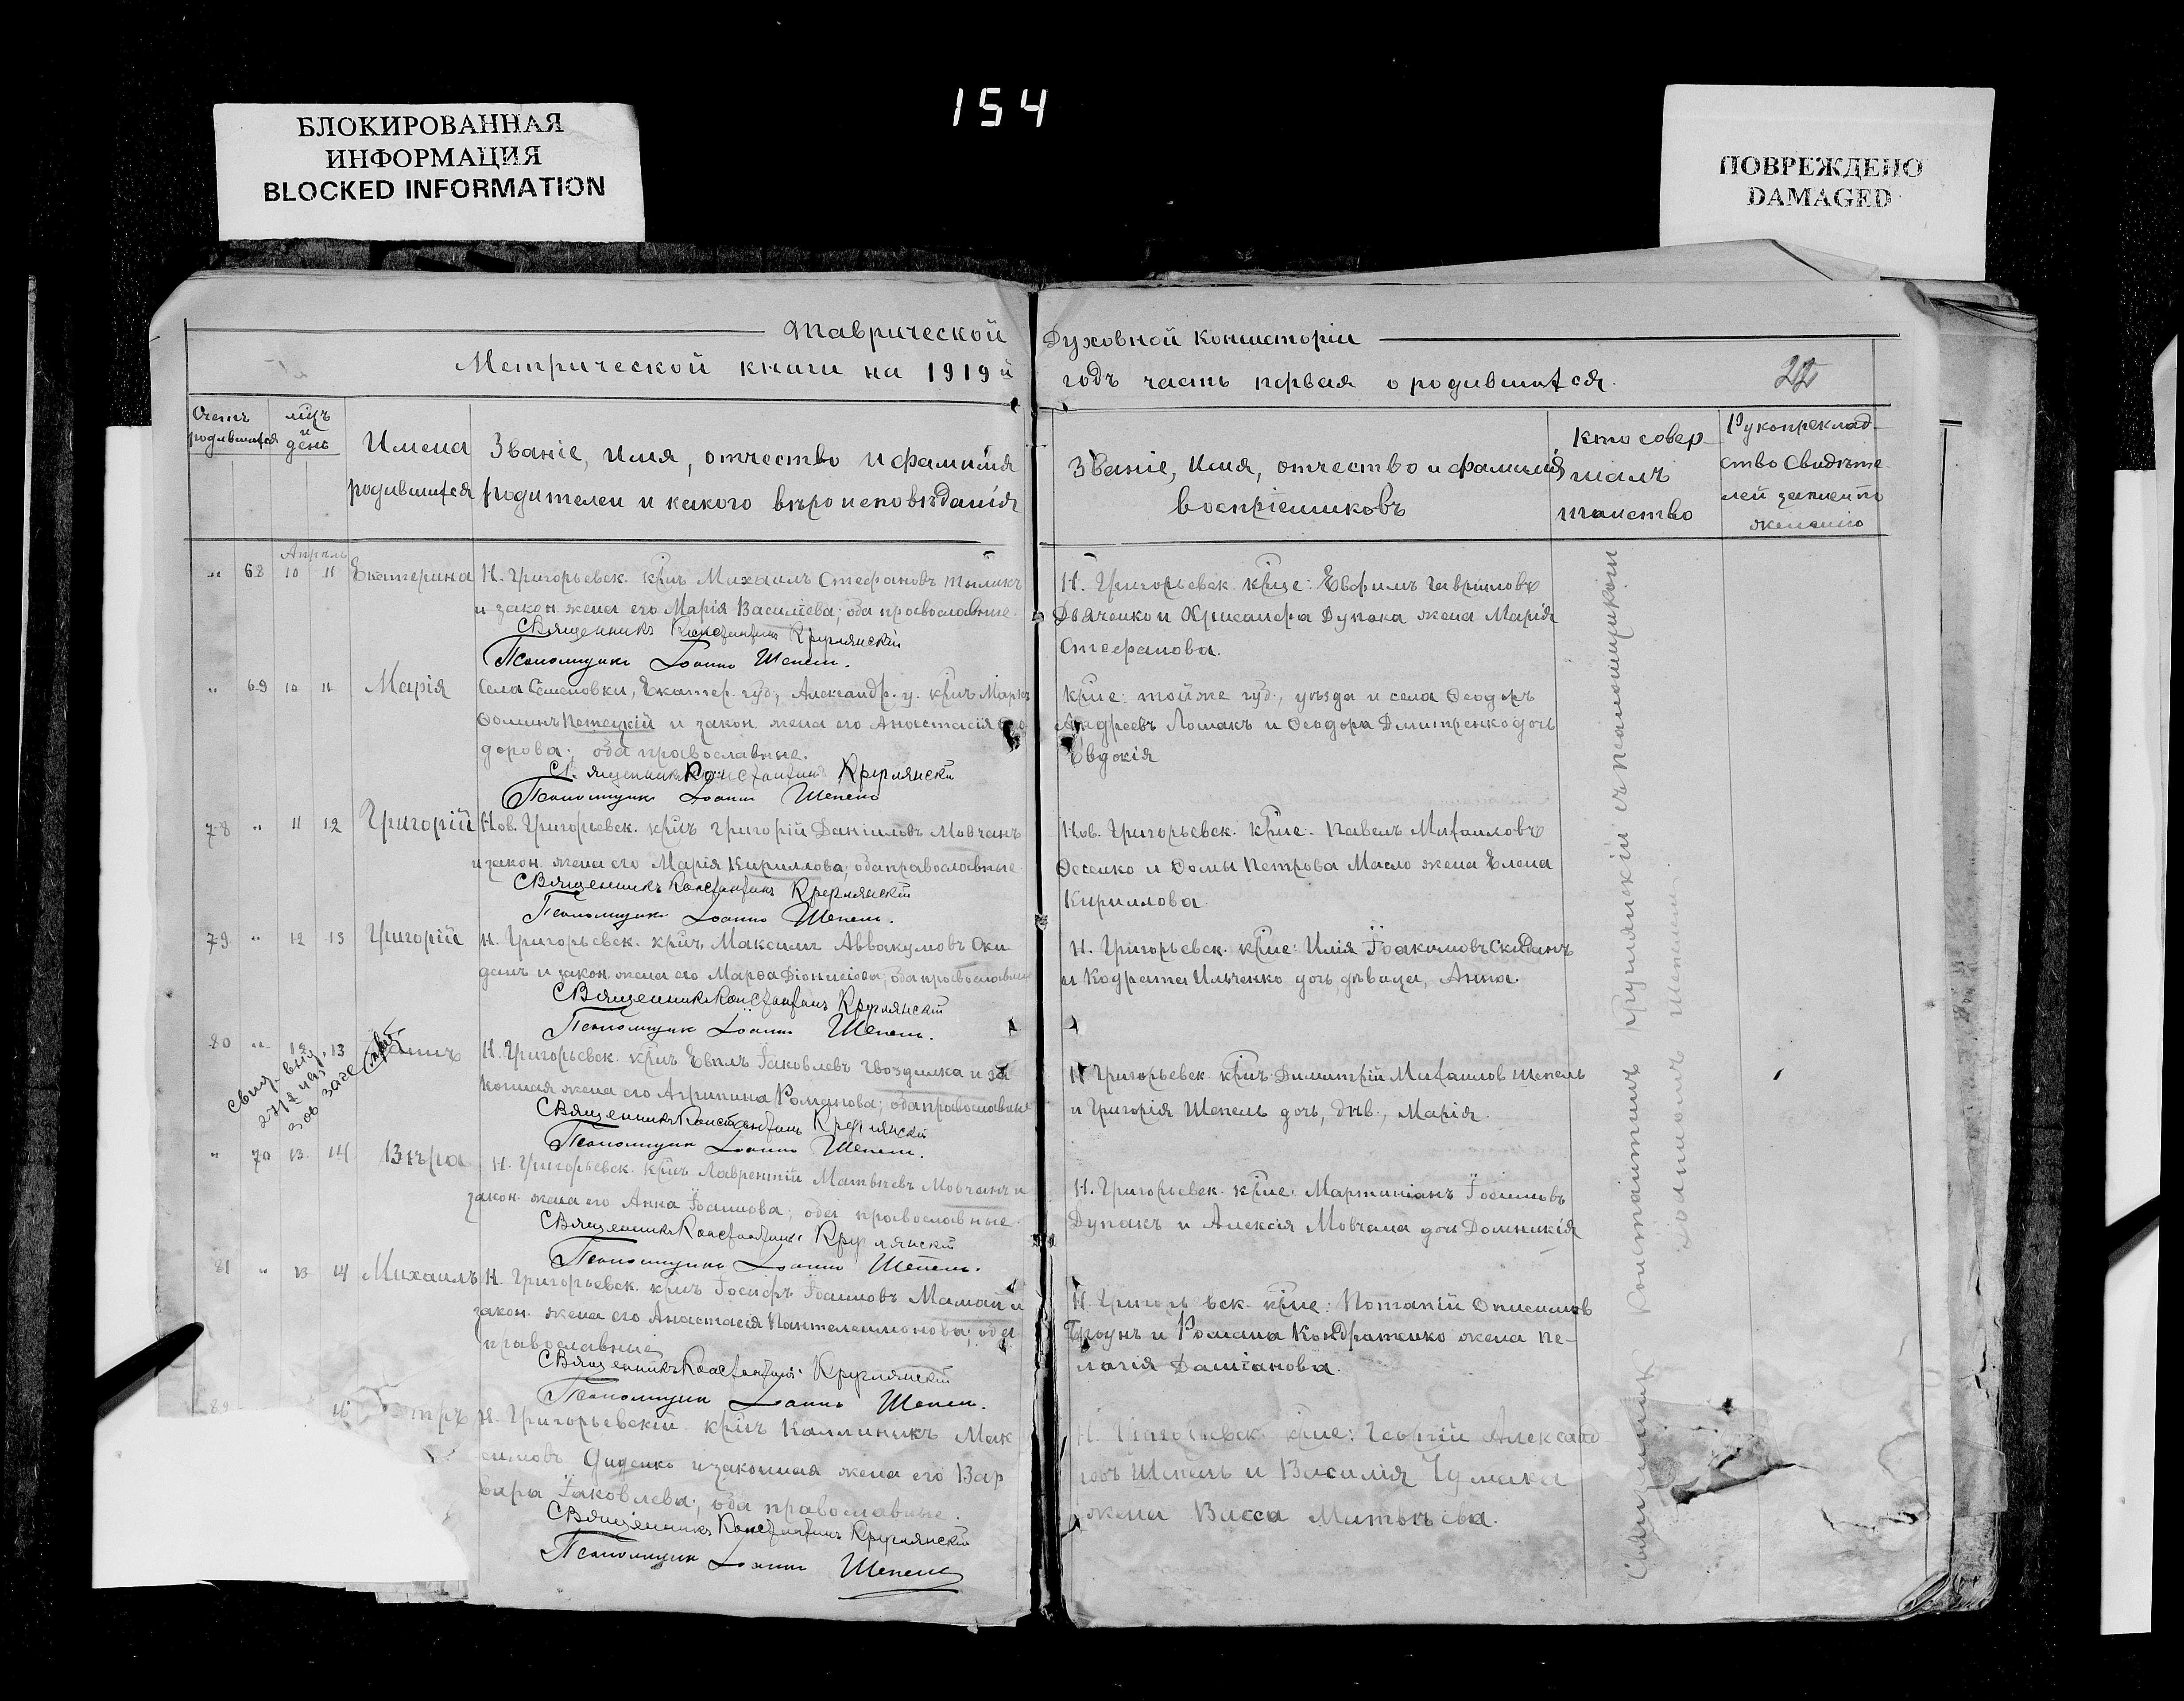 154
БЛОКИРОВАННАЯ
ИНФОРМАЦИЯ
BLOCKED INFORMATION
ПОВРЕЖДЕНО
DAMAGED
Таврической Духовной Консисторіи
Метрической книги на 1919й годъ часть первая о родившихся.
22
Счетъ родившихся
мцъ и день
Имена родившихся
Званіе, имя, отчество и фамилія
родителей и какого вѣроисповѣданія
Званіе, имя, отчество и фамилія
воспріемниковъ
Кто совер
шалъ
таинство
Рукоприклад-
ство свидѣте
лей записи по
желанію
Апрѣль
" 68 10 11 Екатерина Н. Григорьевск. крнъ Михаилъ Стефановъ
и закон. жена его Марія Василіева; оба православные.
Священникъ Константинъ Круглянскій
Псаломщикъ Іоаннъ Шепель.
Н. Григорьевск. крне: Евфимъ Гавриловъ
Дяченко и Хрисанфа Дупака жена Марія
Стефанова.
" 69 10 11 Марія Села Семеновки, Екатер. губ., Александр. у. крнъ Маркъ
Фоминъ и закон. жена его Анастасія Ѳео
дорова; оба православные.
Священникъ Константинъ Круглянскій
Псаломщикъ Іоаннъ Шепель
Крне: той же губ., уѣзда и села Ѳеодоръ
Андреевъ Ломакъ и Ѳеодора Дмитренко дочь
Евдокія
78 " 11 12 Григорій Нов. Григорьевск. крнъ Григорій Даніиловъ Мовчанъ
и закон. жена его Марія Кириллова; оба православные.
Священникъ Константинъ Круглянскій
Псаломщикъ Іоаннъ Шепель.
Нов. Григорьевск. крне: Павелъ Михаиловъ
и Ѳомы Петрова Масло жена Елена
Кириллова.
79 " 12 13 Григорій Н. Григорьевск. крнъ Максимъ Аввакумовъ Ски
данъ и закон. жена его Марѳа Діонисіева; оба православные
Священникъ Константинъ Круглянскій
Псаломщикъ Іоаннъ Шепель.
Н. Григорьевск. крне: Илія Іоакимовъ Скиданъ
и Кодрата Ильченко дочь дѣвица, Анна.
80 " 12 13 Н. Григорьевск. крнъ Іаковлевъ Гвоздилка и за
конная жена его Агрипина Романова; оба православные
Священникъ Константинъ Круглянскій
Псаломщикъ Іоаннъ Шепель.
Н. Григорьевск. крнъ Димитрій Михаилов Шепель
и Григорія Шепель дочь, дѣв., Марія.
" 70 13 14 Вѣра Н. Григорьевск. крнъ Лаврентій Матвѣевъ Мовчанъ и
закон. жена его Анна Іоаннова; оба православные.
Священникъ Константинъ Круглянскій
Псаломщикъ Іоаннъ Шепель.
Н. Григорьевск. крне: Мартиніанъ Іоанновъ
Дупакъ и Алексія Мовчана дочь Домникія
81 " 13 14 Михаилъ Н. Григорьевск. крнъ Іосифъ Іоанновъ Мамай и
закон. жена его Анастасія Пантелеимонова; оба
православные
Священникъ Константинъ Круглянскій
Псаломщикъ Іоаннъ Шепель.
Н. Григорьевск. крне: Потапій Онисимов
и Романа Кондратенко жена Пе-
лагія Даміанова.
Н. Григорьевскій крнъ Каллиникъ Мак
симовъ Диденко и законная жена его Вар
вара Іаковлева; оба православные.
Священникъ Константинъ Круглянскій
Псаломщикъ Іоаннъ Шепель
Н. Григорьевск. крне: Георгій Александ
ровъ Шепель и Василія Чумака
жена Васса Матвѣева.
Священник Константинъ Круглянскій съ псаломщикомъ
Іоанномъ Шепелемъ.